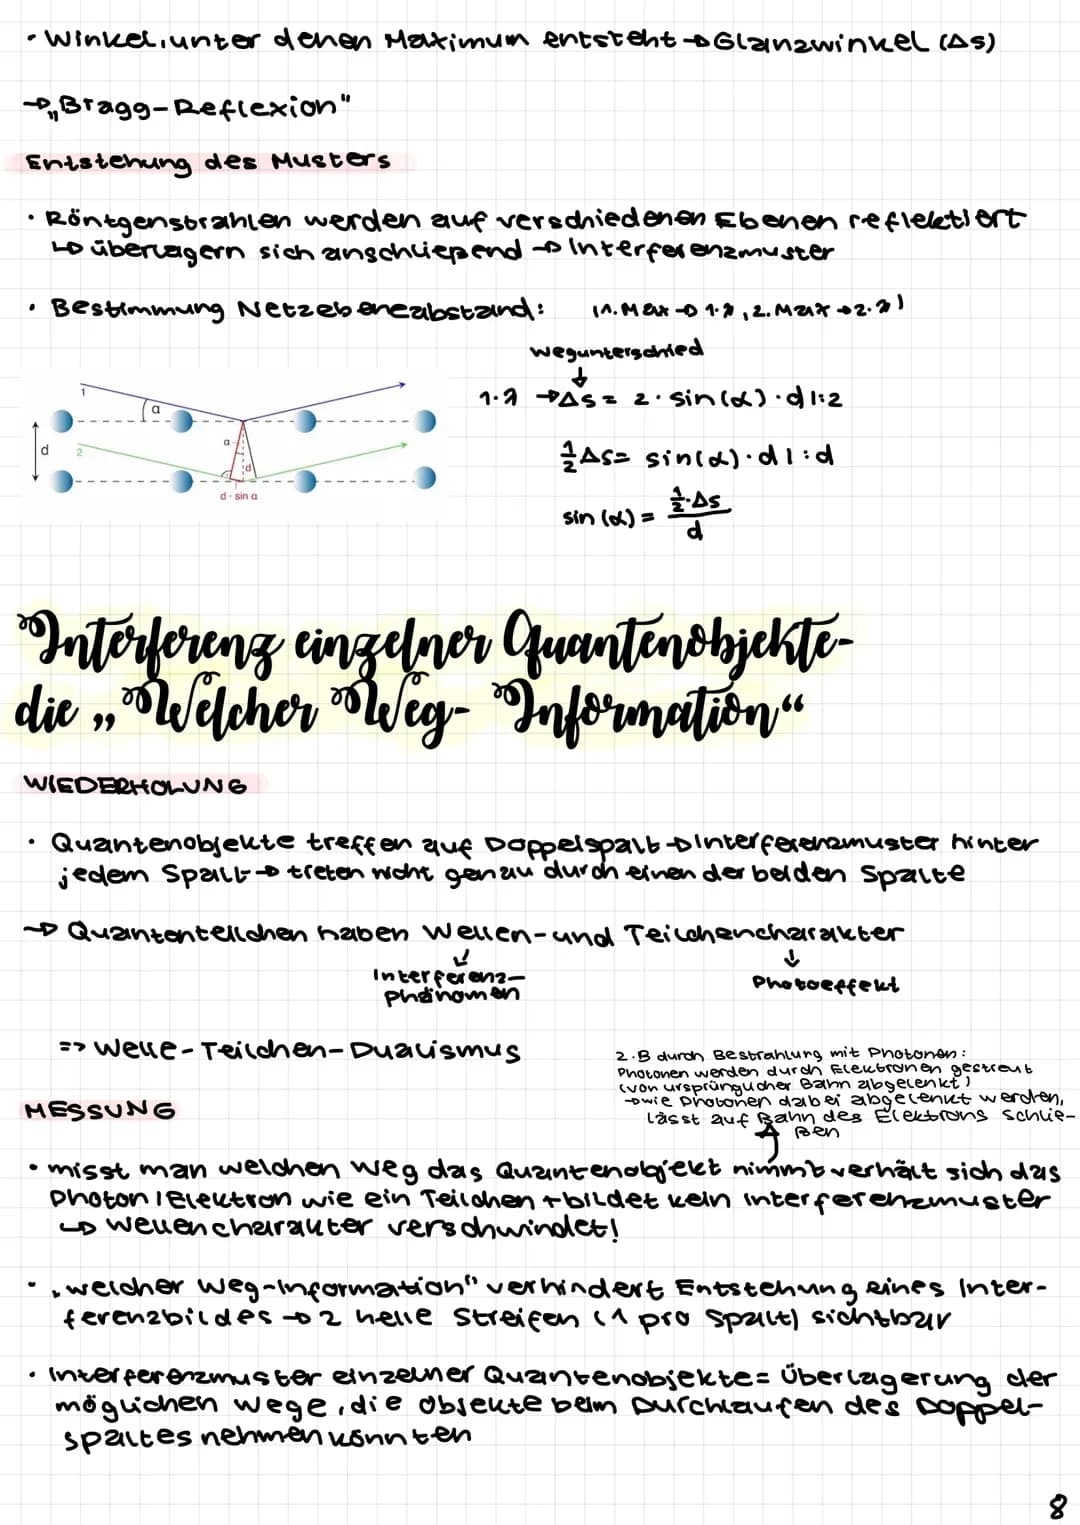 • Winkel, unter denen Maximum entsteht → Glanzwinkel (Δs)
→ „Bragg-Reflexion"
Entstehung des Musters
• Röntgenstrahlen werden auf verschiedenen Ebenen reflektiert
↳ überlagern sich anschließend → Interferenzmuster
• Bestimmung Netzebeneabstand: (1. Max → 1·λ, 2. Max → 2·λ)
Wegunterschied
↓
1·λ → Δs = 2 · sin(α) · d |:2
½Δs = sin(α) · d | : d
sin (α) = ½·Δs / d
1
α
d
2
α
d
d · sin α
Interferenz einzelner Quantenobjekte-
die „Welcher Weg- Information“
WIEDERHOLUNG
• Quantenobjekte treffen auf Doppelspalt → Interferenzmuster hinter
jedem Spalt → treten nicht genau durch einen der beiden Spalte
→ Quantenteilchen haben Wellen- und Teilchencharakter
↓ ↓
Interferenz-
phänomen
Photoeffekt
=> Welle-Teilchen-Dualismus
z.B durch Bestrahlung mit Photonen:
Photonen werden durch Elektronen gestreut
(von ursprünglicher Bahn abgelenkt)
→ wie Photonen dabei abgelenkt werden,
lässt auf Bahn des Elektrons schlie-
ßen
MESSUNG
• misst man welchen Weg das Quantenobjekt nimmt verhält sich das
Photon / Elektron wie ein Teilchen + bildet kein Interferenzmuster
↳ Wellencharakter verschwindet!
• „welcher Weg-Information" verhindert Entstehung eines Inter-
ferenzbildes → 2 helle Streifen (1 pro Spalt) sichtbar
• Interferenzmuster einzelner Quantenobjekte = Überlagerung der
möglichen Wege, die Objekte beim Durchlaufen des Doppel-
spaltes nehmen könnten
8